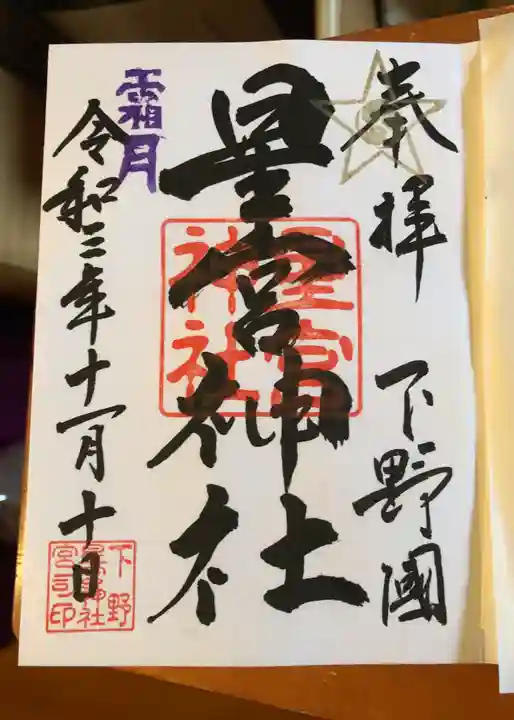 奉拝 下野國
星宮神社
星宮
神社
霜月
令和三年十一月十日
下野
星宮神社
宮司印